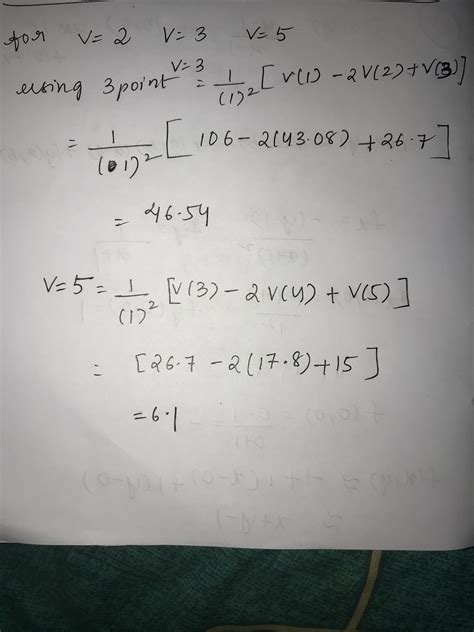 for V=2 V=3 V=5
using 3point V=3 = 1/(1)² [V(1) - 2V(2) + V(3)]
= 1/(01)² [106 - 2(43.08) + 26.7]
= 46.54
V=5 = 1/(1)² [V(3) - 2V(4) + V(5)]
= [26.7 - 2(17.8) + 15]
= 6.1